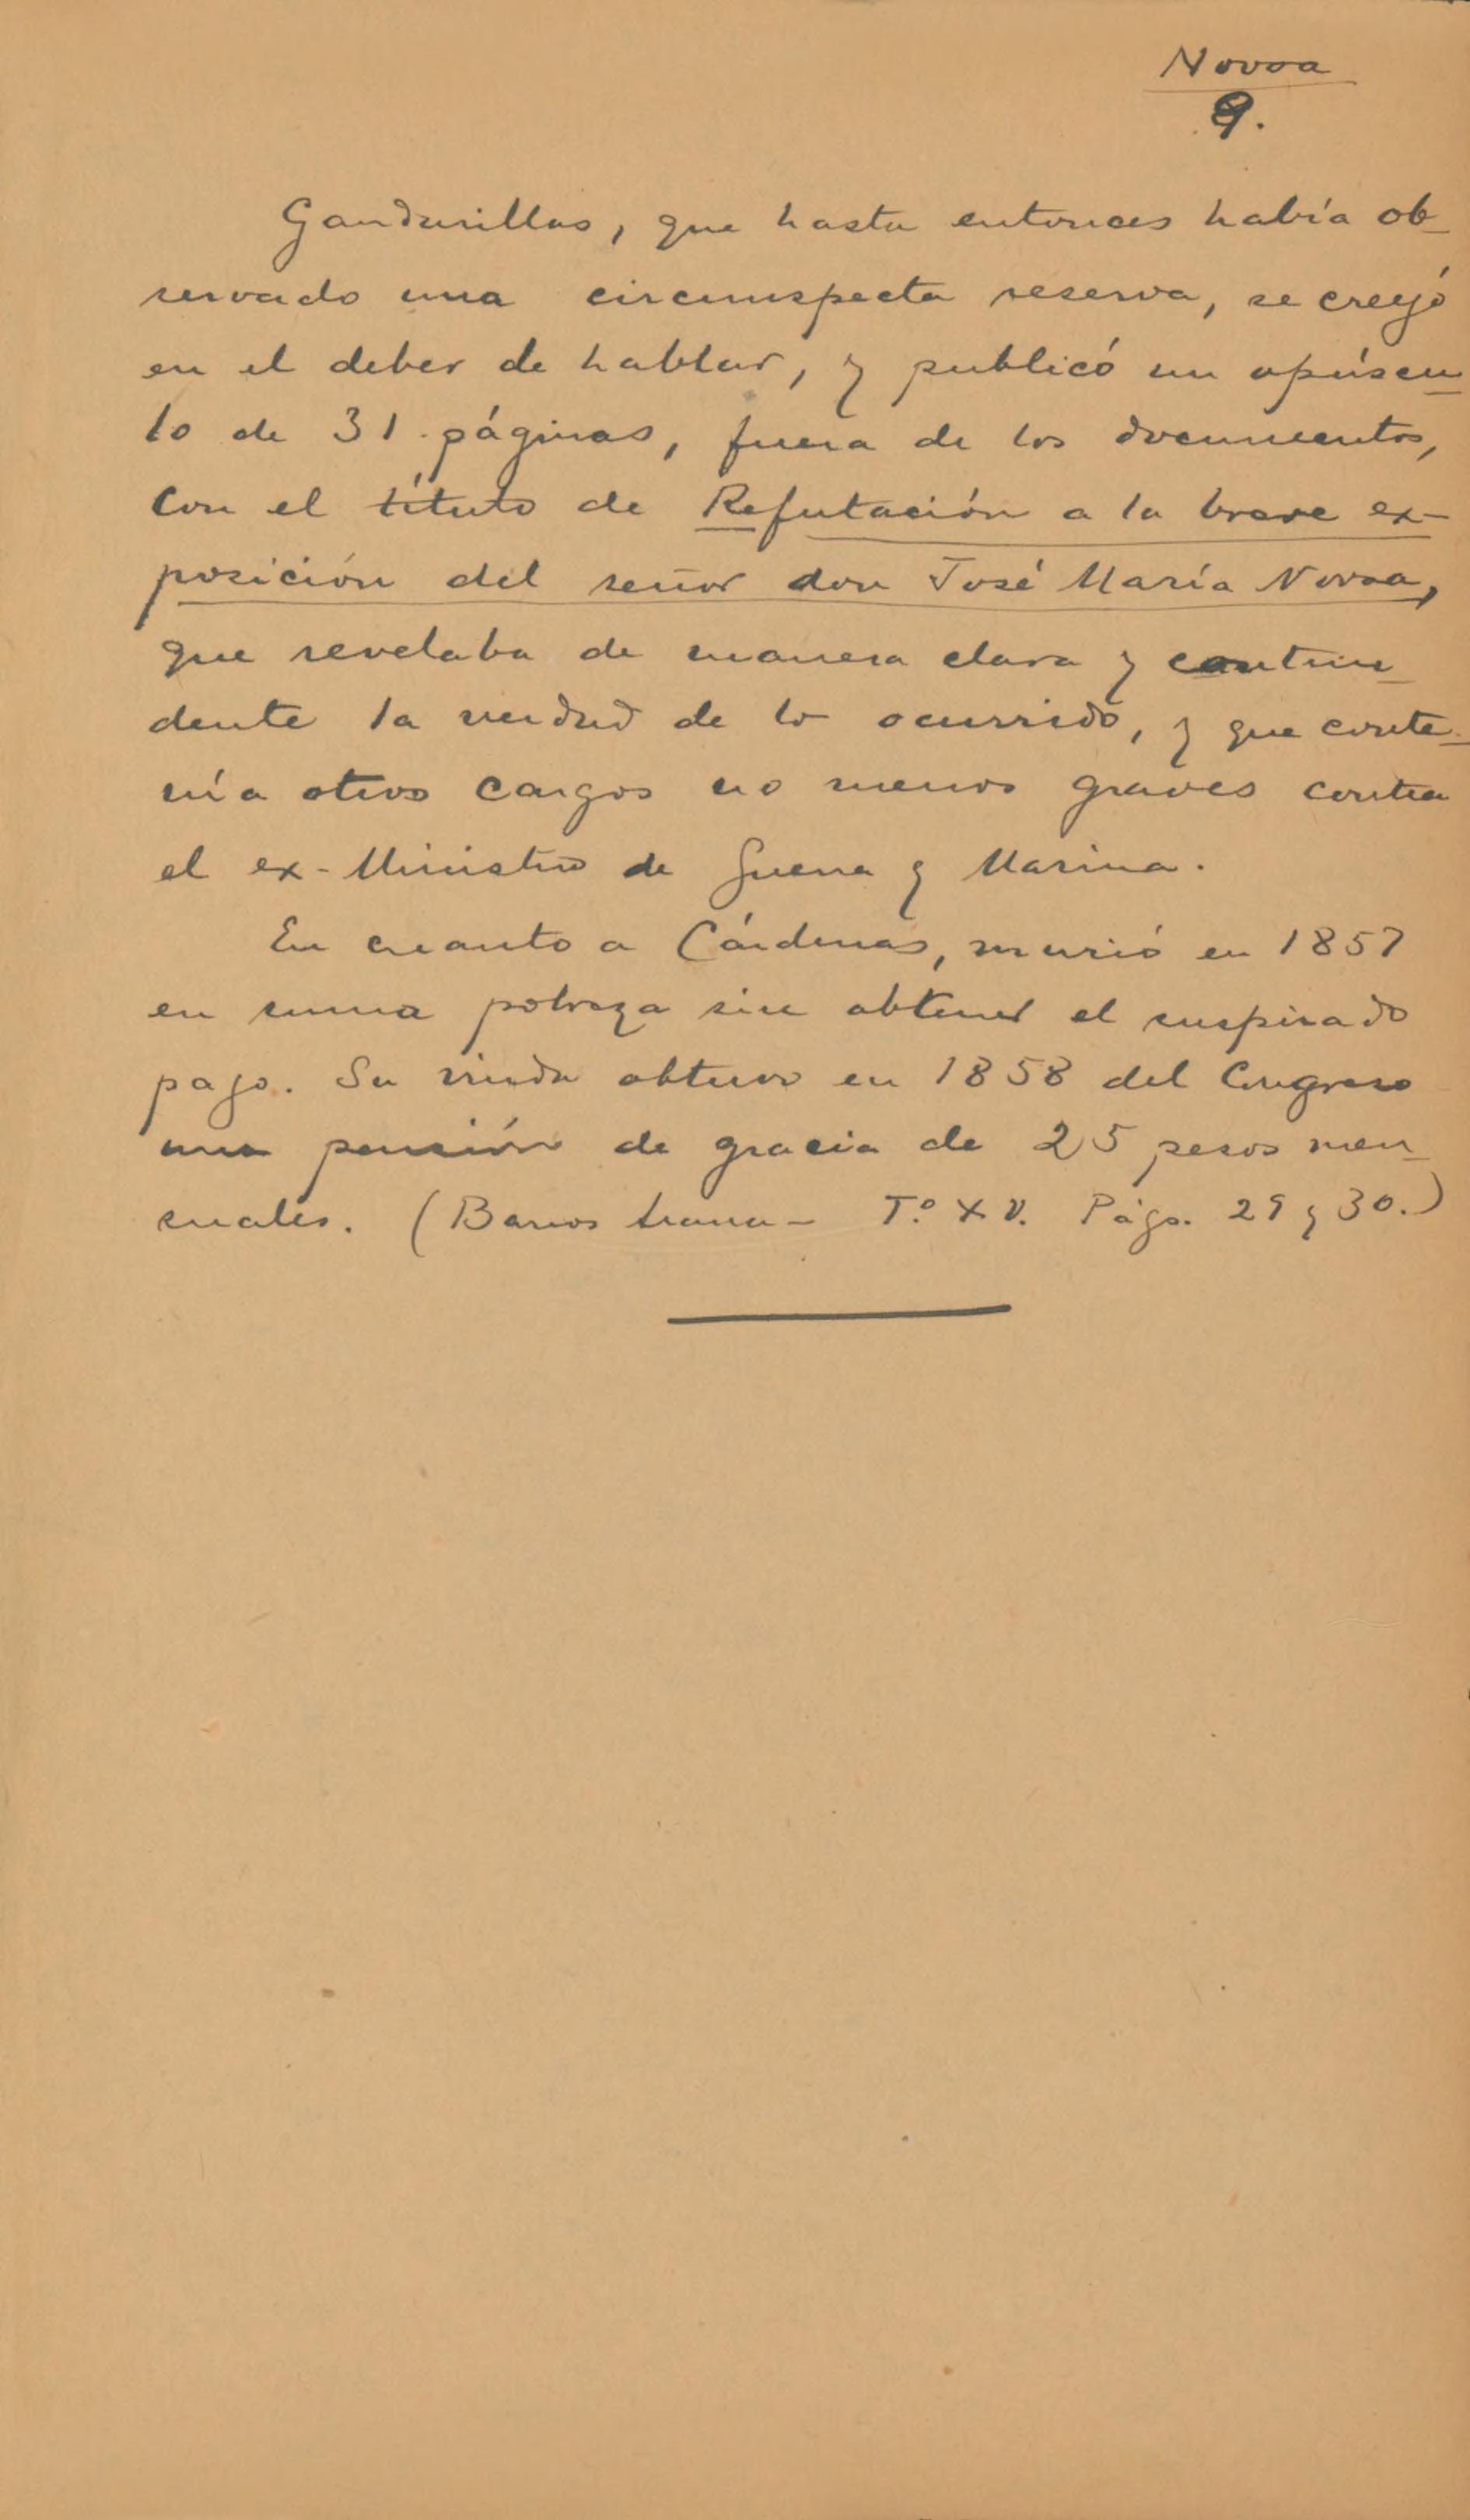 Novoa
9.
Gandarillas, que hasta entonces había ob-
servado una circunspecta reserva, se creyó
en el deber de hablar, y publicó un opúscu-
lo de 31 páginas, fuera de los documentos,
con el título de Refutación a la breve ex-
posición del señor don José María Novoa,
que revelaba de manera clara y contun-
dente la verdad de lo ocurrido, y que conte-
nía otros cargos no menos graves contra
el ex-Ministro de Guerra y Marina.
En cuanto a Cárdenas, murió en 1857
en suma pobreza sin obtener el suspirado
pago. Su viuda obtuvo en 1858 del Congreso
una pensión de gracia de 25 pesos men-
suales. (Barros Arana - T.º XV. Págs. 29 y 30.)